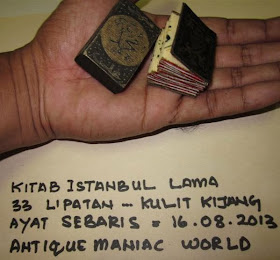 KITAB ISTANBUL LAMA
33 LIPATAN -- KULIT KIJANG
AYAT SEBARIS = 16.08.2013
ANTIQUE MANIAC WORLD